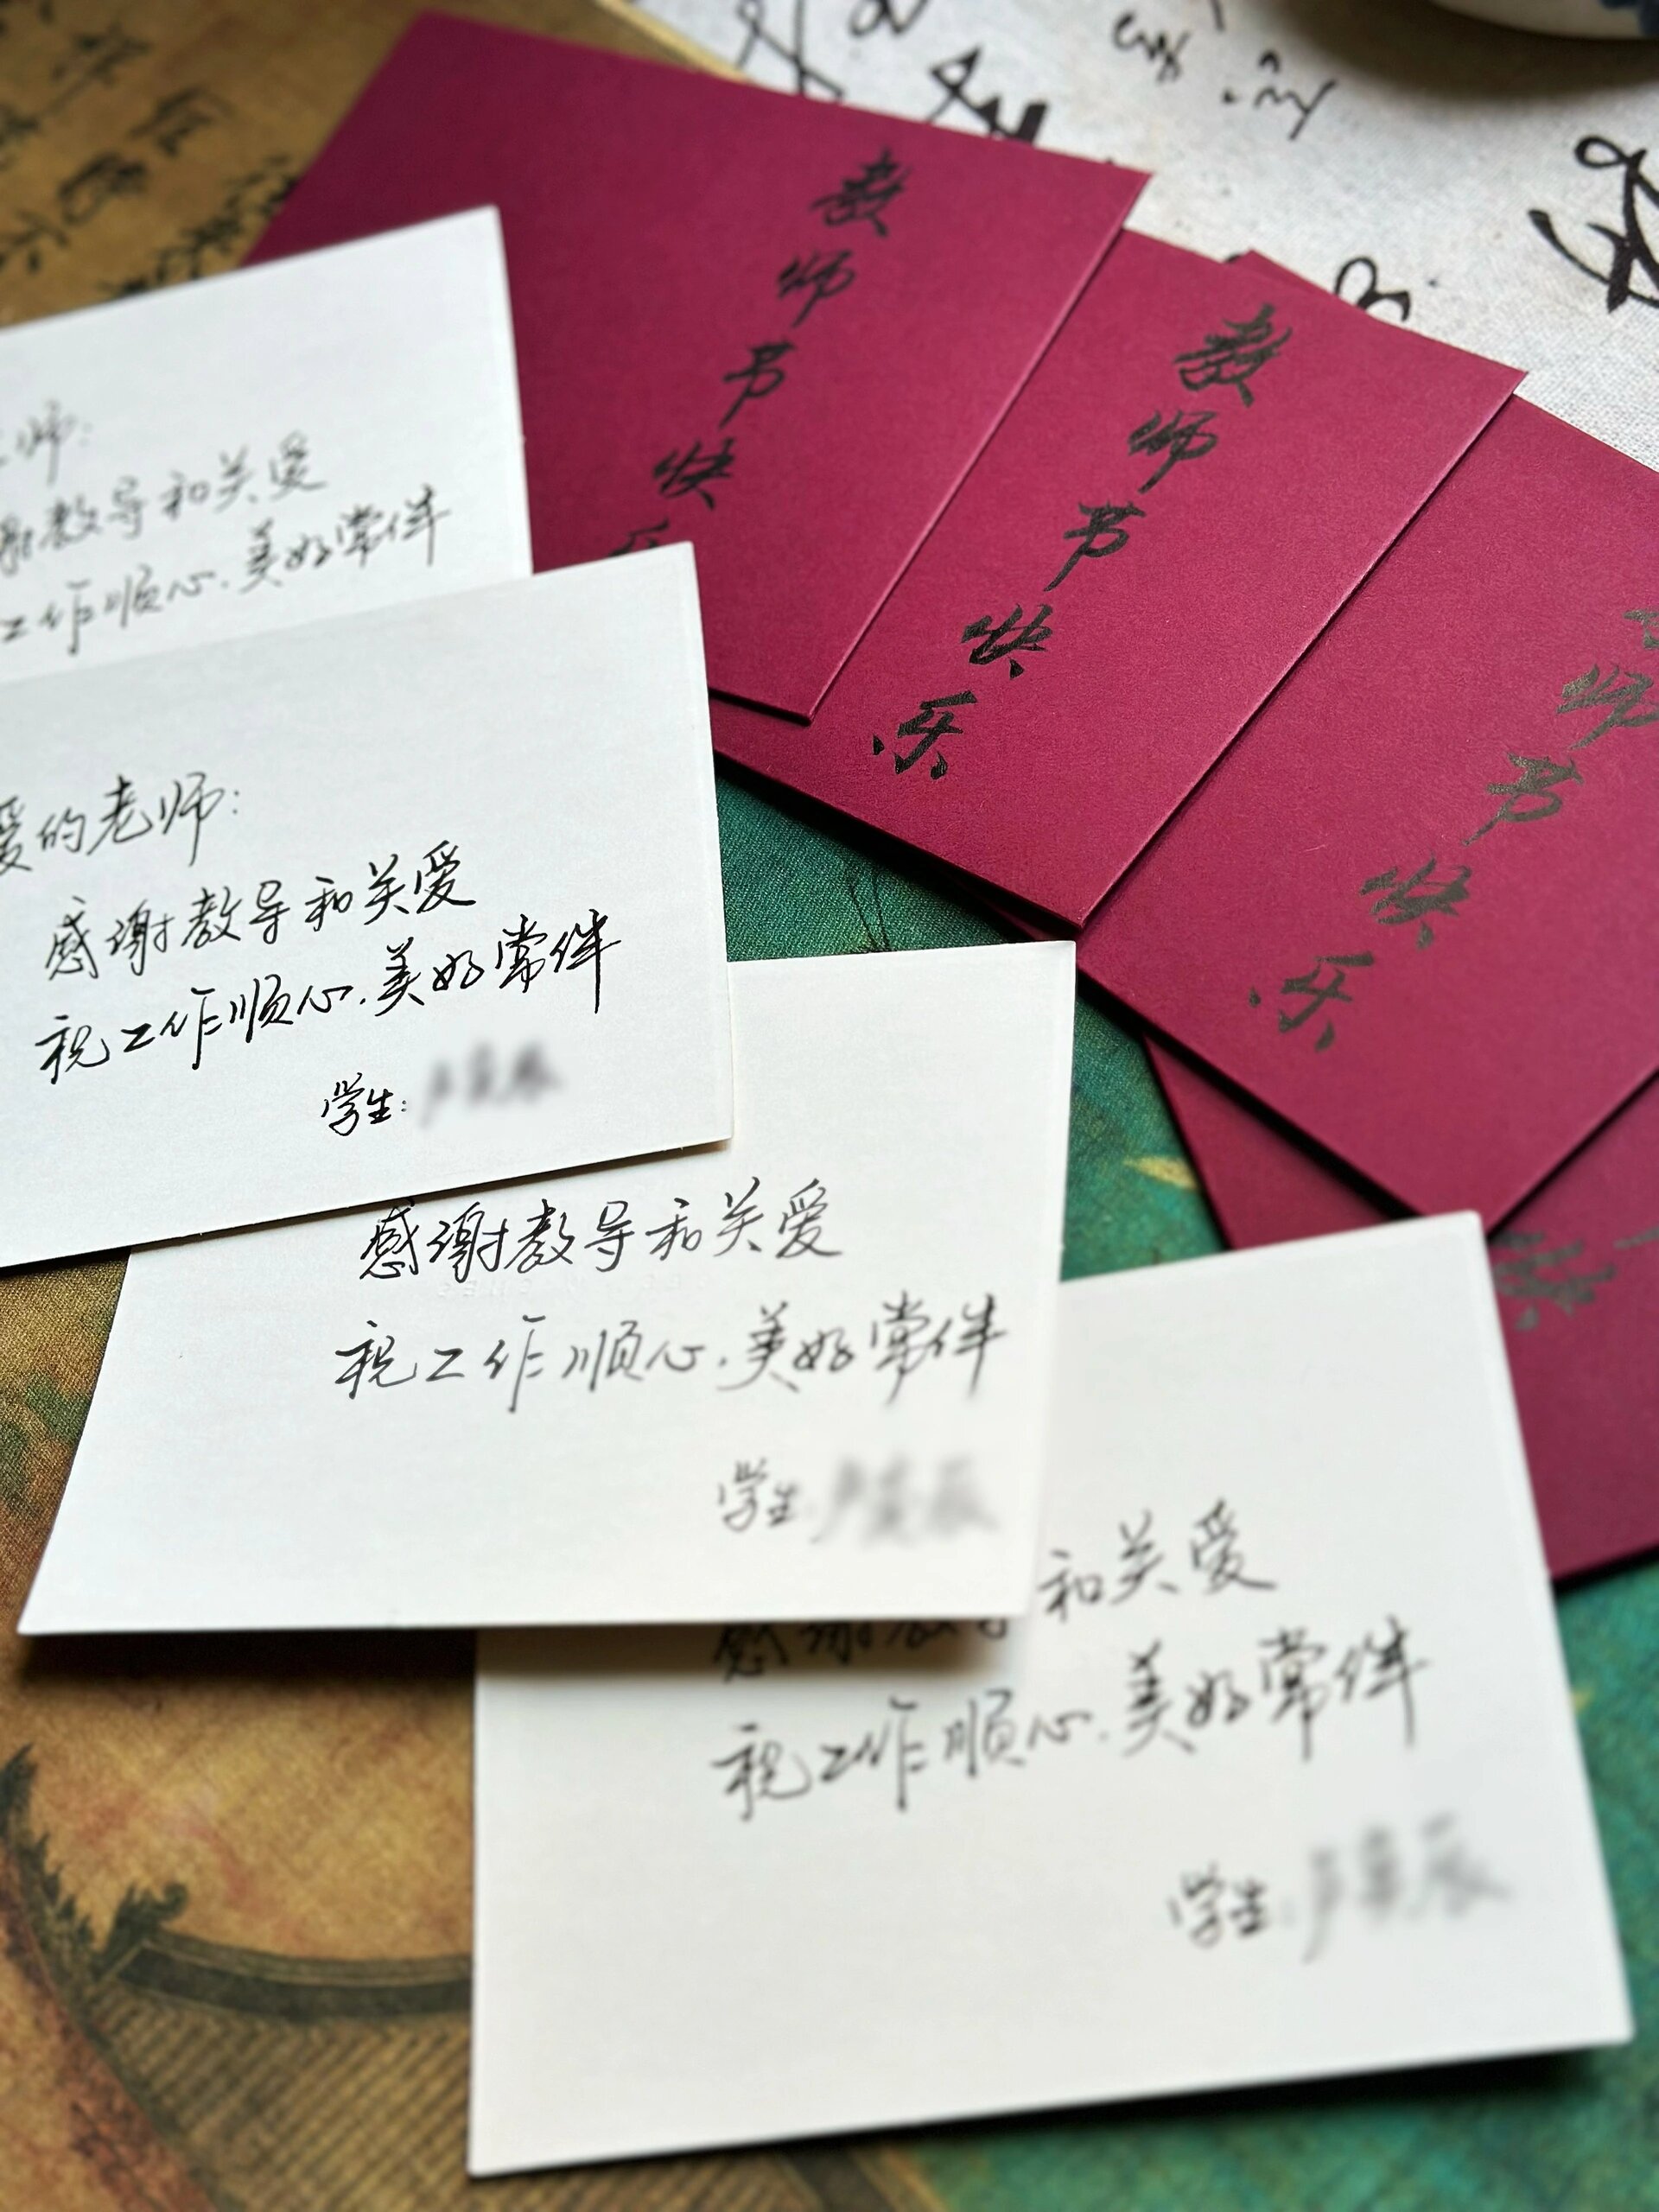 教师节快乐
教师节快乐
师节快乐
快
师:
谢教导和关爱
工作顺心.美好常伴
爱的老师:
感谢教导和关爱
祝工作顺心.美好常伴
学生:
感谢教导和关爱
祝工作顺心.美好常伴
学生
感谢教导和关爱
祝工作顺心.美好常伴
学生